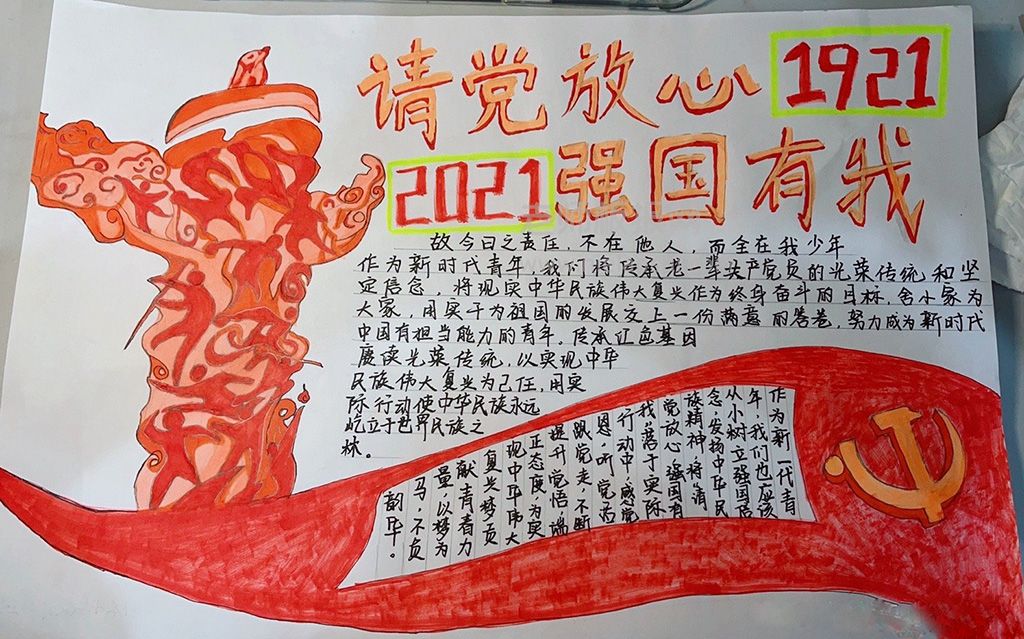 请党放心 1921
2021 强国有我
故今日之责任，不在他人，而全在我少年
作为新时代青年，我们将传承老一辈共产党员的光荣传统和坚
定信念，将现实中华民族伟大复兴作为终身奋斗的目标，舍小家为
大家，用实干为祖国的发展交上一份满意的答卷，努力成为新时代
中国有担当能力的青年。传承红色基因
赓续光荣传统，以实现中华
民族伟大复兴为己任，用实
际行动使中华民族永远
屹立于世界民族之
林。
作为新一代青
年，我们也应该
从小树立强国信
念，发扬中华民
族精神，将"请
党放心强国有
我"落于实际
行动中，感党
恩，听党话
跟党走，不断
提升觉悟，端
正态度，为实
现中华伟大
复兴梦贡
献青春力
量，以梦为
马，不负
韶华。